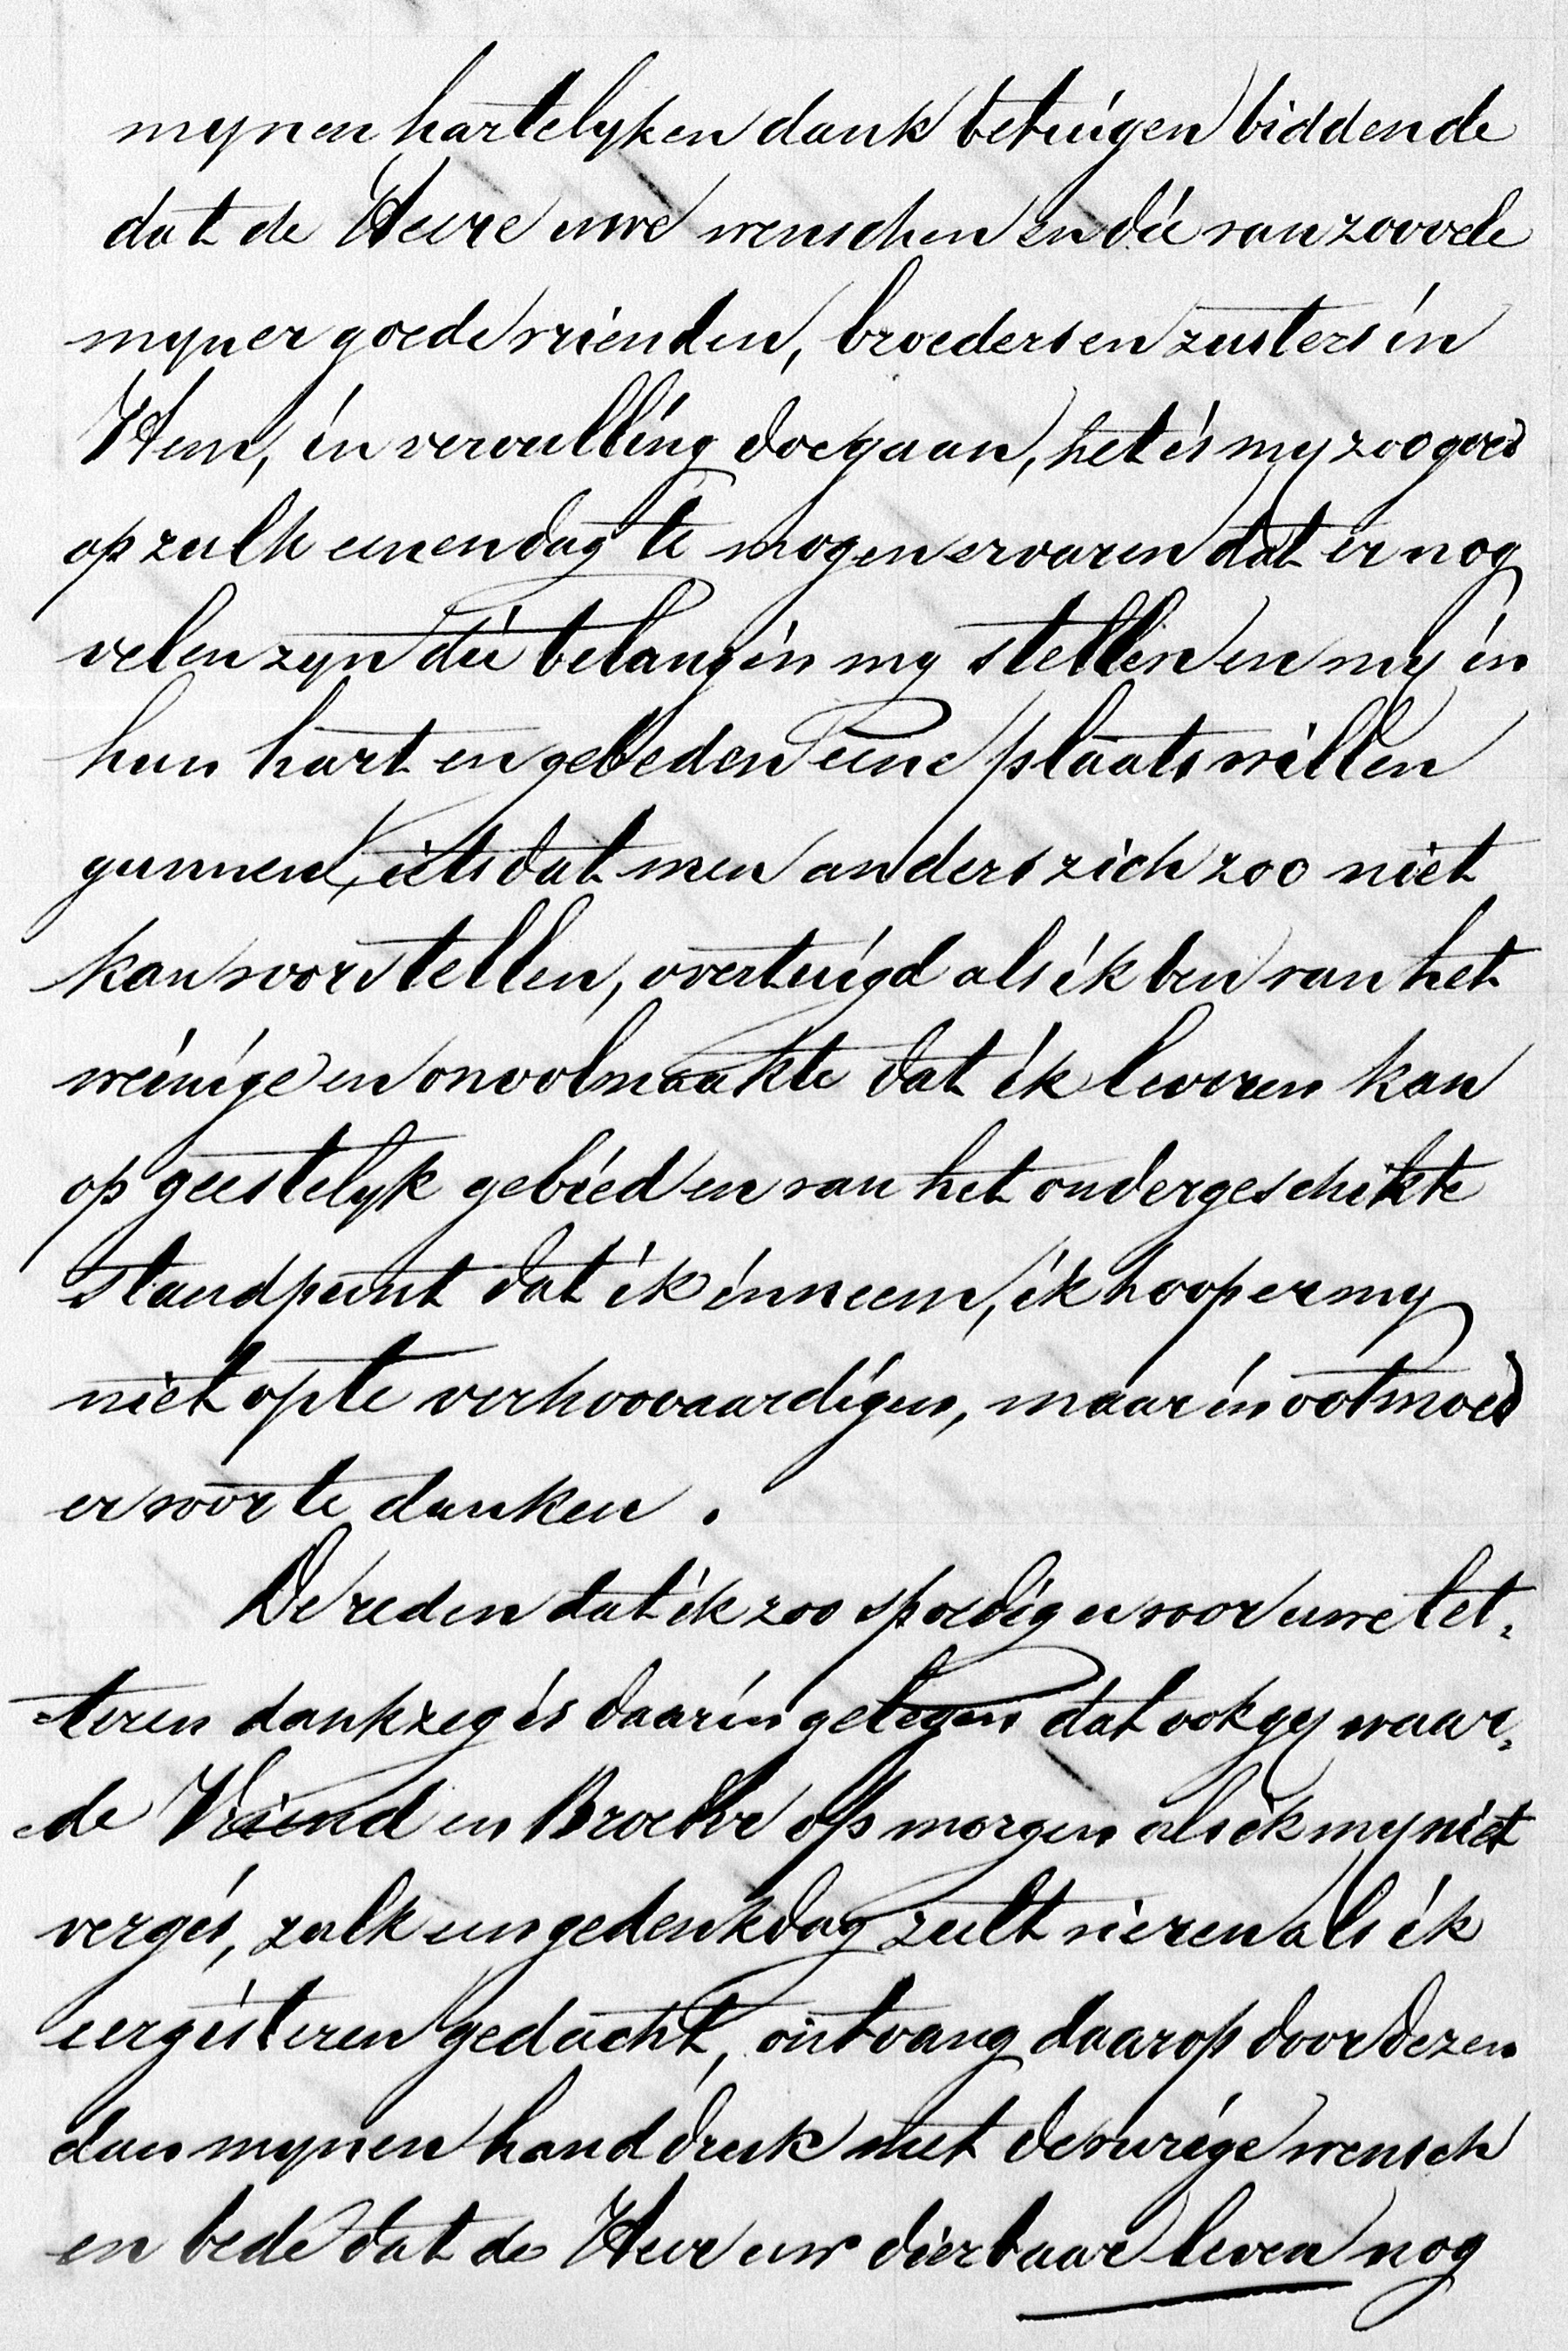 mynen hartelyken dank betuigen biddende
dat de Heere uwe wenschen en die van zoovele
myner goede vrienden, broeders en zusters in
Hem, in vervulling doe gaan, het is my zoo goed
op zulk eenen dag te mogen ervaren dat er nog
velen zyn die belang in my stellen en my in
hun hart en gebeden eene plaats willen
gunnen, iets dat men anders zich zoo niet
kan voorstellen, overtuigd als ik ben van het
weinige en onvolmaakte dat ik leveren kan
op geestelyk gebied en van het ondergeschikte
standpunt dat ik inneem, ik hoop er my
niet op te verhoovaardigen, maar in ootmoed
er voor te danken.
De reden dat ik zoo spoedig u voor uwe let„
„teren dank zeg is daarin gelegen dat ook gy waar„
„de Vriend en Broeder op morgen als ik my niet
vergis, zulk een gedenkdag zult vieren als ik
eergisteren gedacht, ontvang daarop door dezen
dan mynen handdruk met de vurige wensch
en bede dat de Heere uw dierbaar leven nog